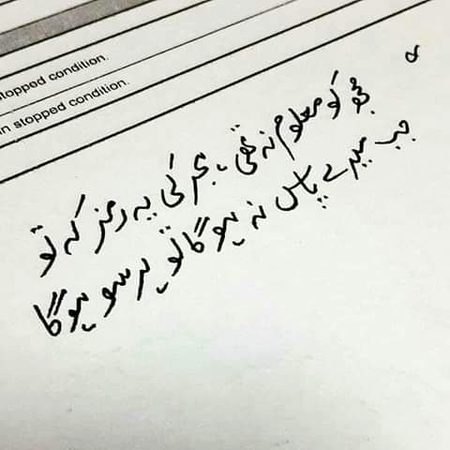 stopped condition.
n stopped condition.
مجھ کو معلوم نہ تھی ہجر کی یہ رمز کہ تو
جب میرے پاس نہ ہوگا تو ہر سو ہوگا